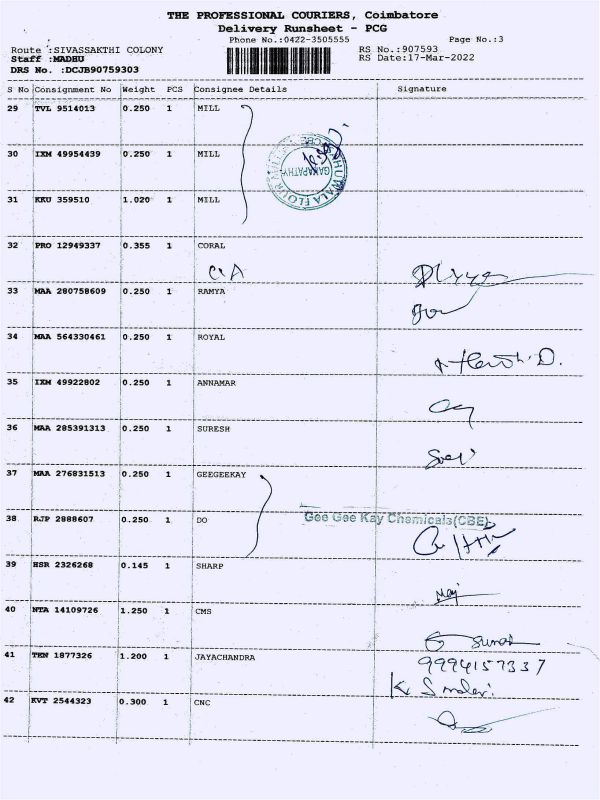 THE PROFESSIONAL COURIERS, Coimbatore
Delivery Runsheet - PCG
Phone No.:0422-3505555 Page No.:3
Route :SIVASSAKTHI COLONY RS No.:907593
Staff :MADHU RS Date:17-Mar-2022
DRS No. :DCJB90759303
S No Consignment No Weight PCS Consignee Details Signature
29 TVL 9514013 0.250 1 MILL
30 IXM 49954439 0.250 1 MILL
GANAPATHY
31 KKU 359510 1.020 1 MILL
32 PRO 12949337 0.355 1 CORAL
33 MAA 280758609 0.250 1 RAMYA
34 MAA 564330461 0.250 1 ROYAL
35 IXM 49922802 0.250 1 ANNAMAR
36 MAA 285391313 0.250 1 SURESH
37 MAA 276831513 0.250 1 GEEGEEKAY
38 RJP 2888607 0.250 1 DO Gee Gee Kay Chemicals(CBE)
39 HSR 2326268 0.145 1 SHARP
40 NTA 14109726 1.250 1 CMS
41 TEN 1877326 1.200 1 JAYACHANDRA 9994157337
42 KVT 2544323 0.300 1 CNC